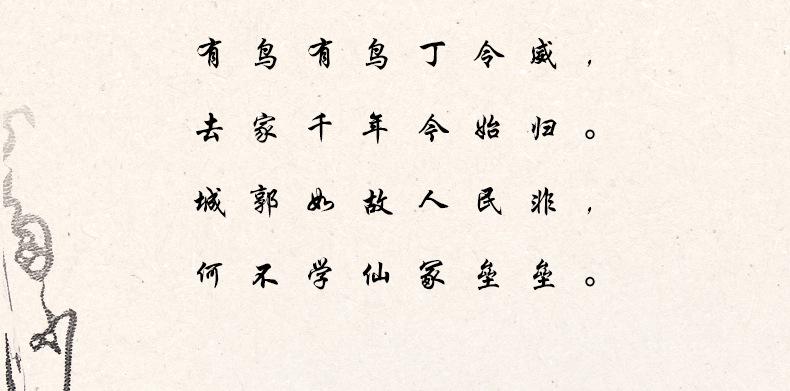 有鸟有鸟丁令威，
去家千年今始归。
城郭如故人民非，
何不学仙冢垒垒。